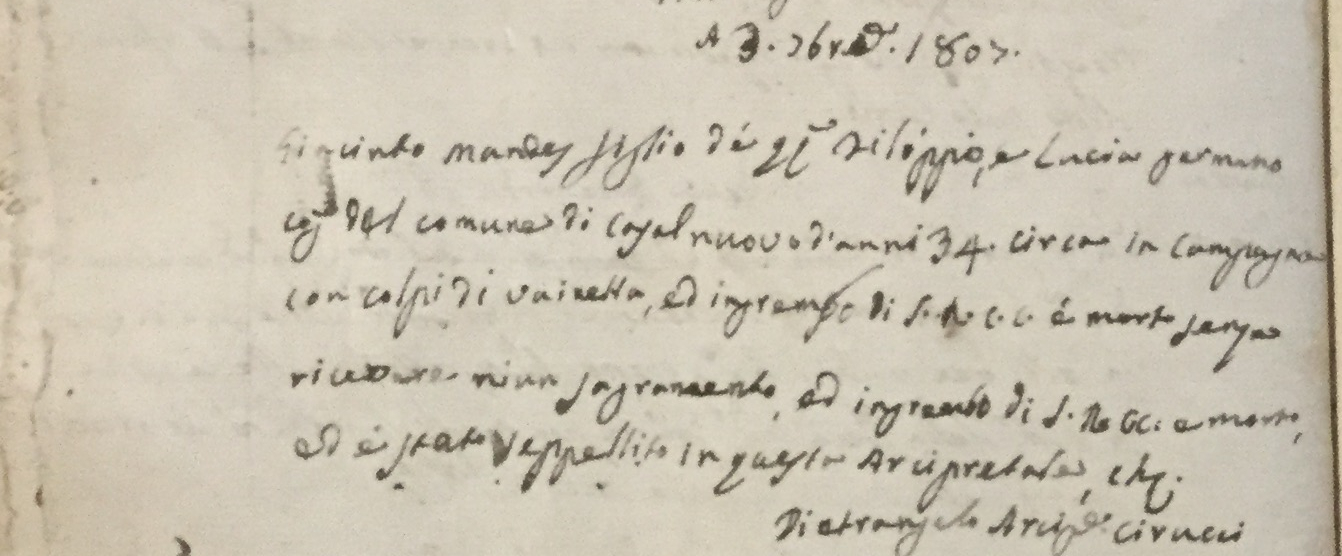 A 3. 7bre. 1807.
Giacinto Mandes figlio dé qq. Filippo, e Lucia germano
cōj del comune di Casalnuovo d'anni 34. circa in Campagna
con colpi di vainetta, ed in grembo di S. R. C. é morto senza
ricevere niun sagramento, ed in grembo di S. Ro CC. e morto,
ed é stato seppellito in questa Arcipretale, etc.
Pietrangelo Arcipe. Cirucci